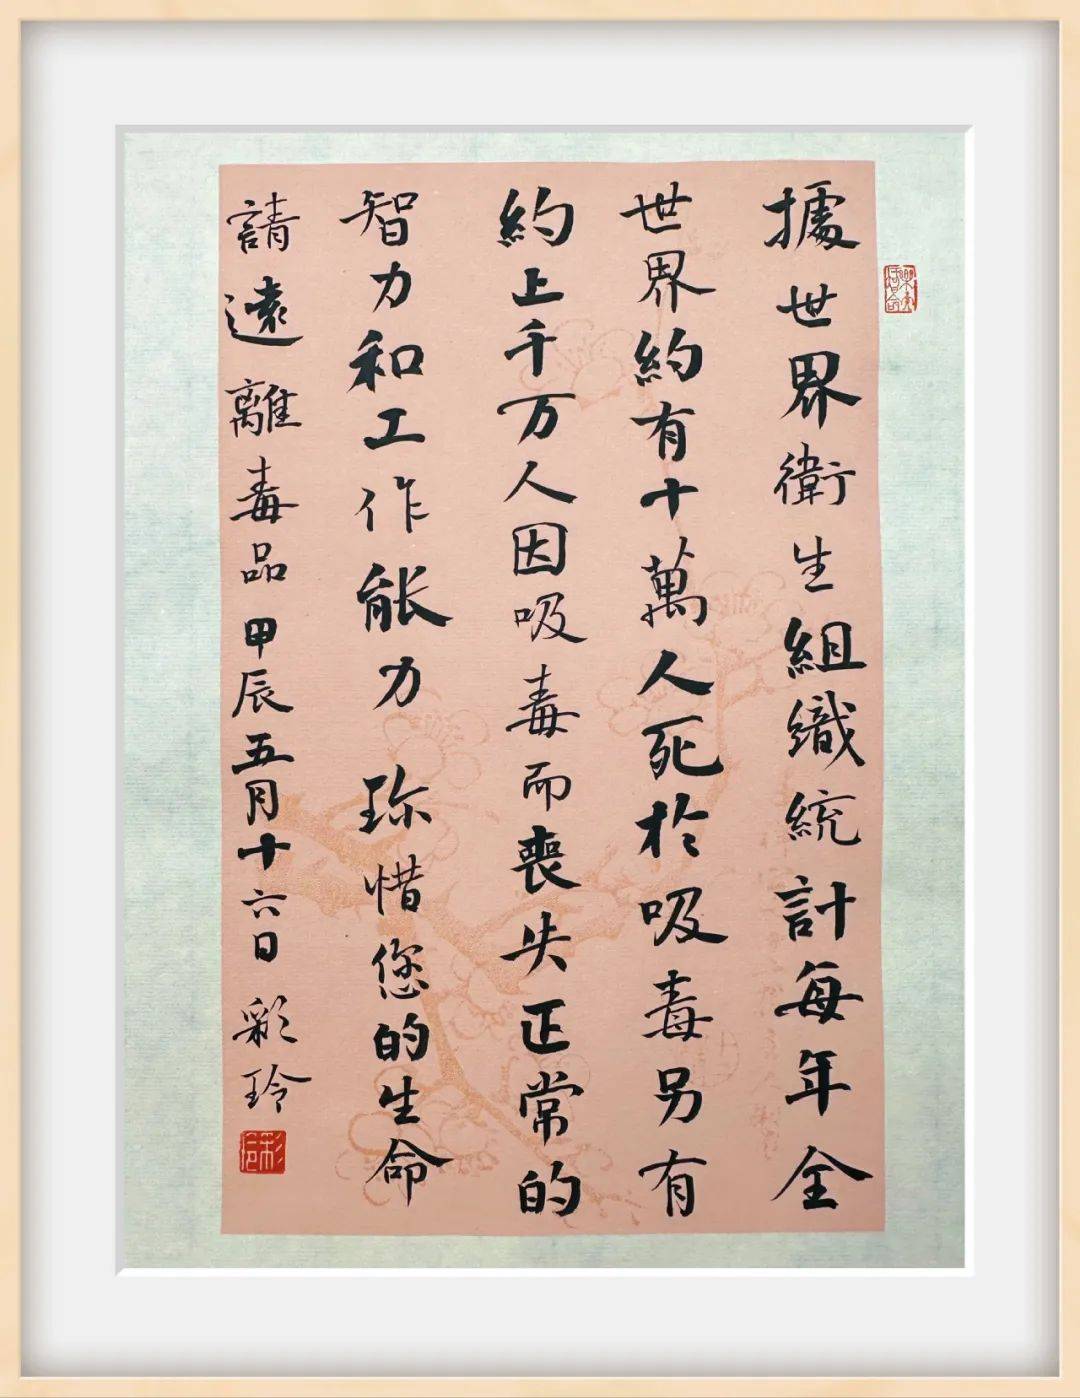 據世界衛生組織統計每年全
世界約有十萬人死於吸毒另有
約上千万人因吸毒而喪失正常的
智力和工作能力 珍惜您的生命
請遠離毒品 甲辰五月十六日 彩玲